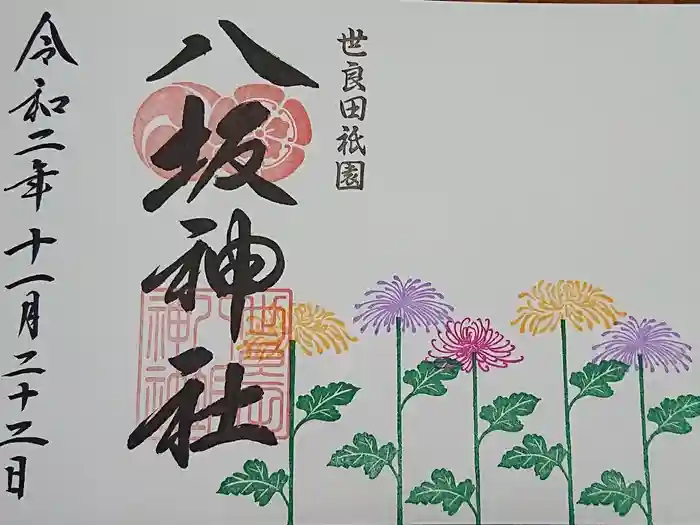 世良田祇園
八坂神社
令和二年十一月二十二日